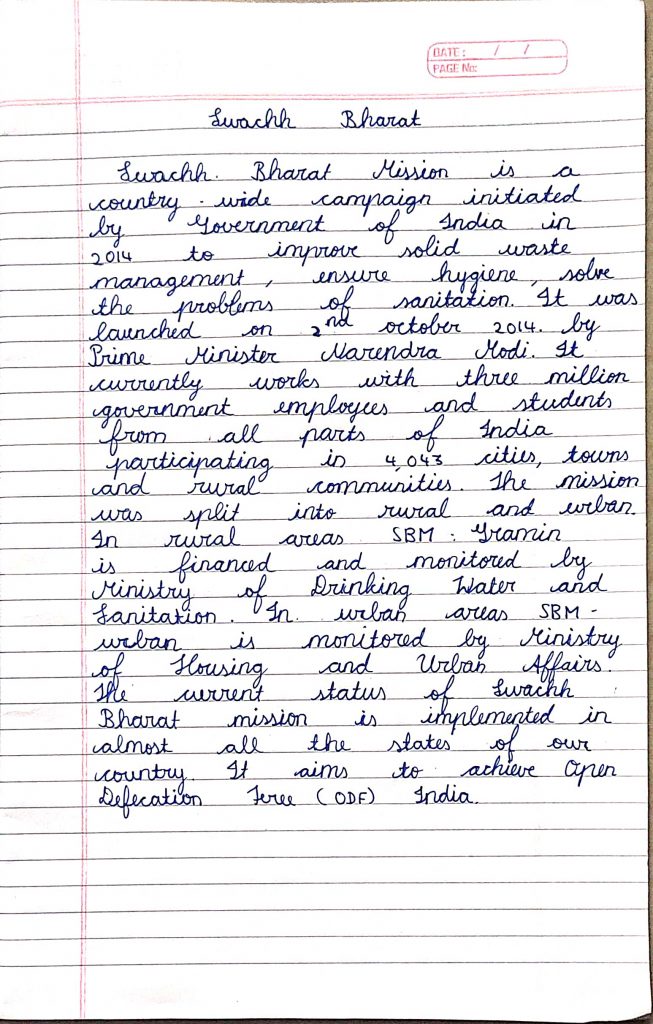 DATE: / /
PAGE No:
Swachh Bharat
Swachh. Bharat Mission is a
country - wide campaign initiated
by Government of India in
2014 to improve solid waste
management, ensure hygiene, solve
the problems of sanitation. It was
launched on 2nd october 2014. by
Prime Minister Narendra Modi. It
currently works with three million
government employees and students
from all parts of India
participating in 4,043 cities, towns
and rural communities. The mission
was split into rural and urban.
In rural areas SBM : Gramin
is financed and monitored by
Ministry of Drinking Water and
Sanitation. In urban areas SBM -
urban is monitored by Ministry
of Housing and Urban Affairs.
The current status of Swachh
Bharat mission is implemented in
almost all the states of our
country. It aims to achieve Open
Defecation Feree (ODF) India.